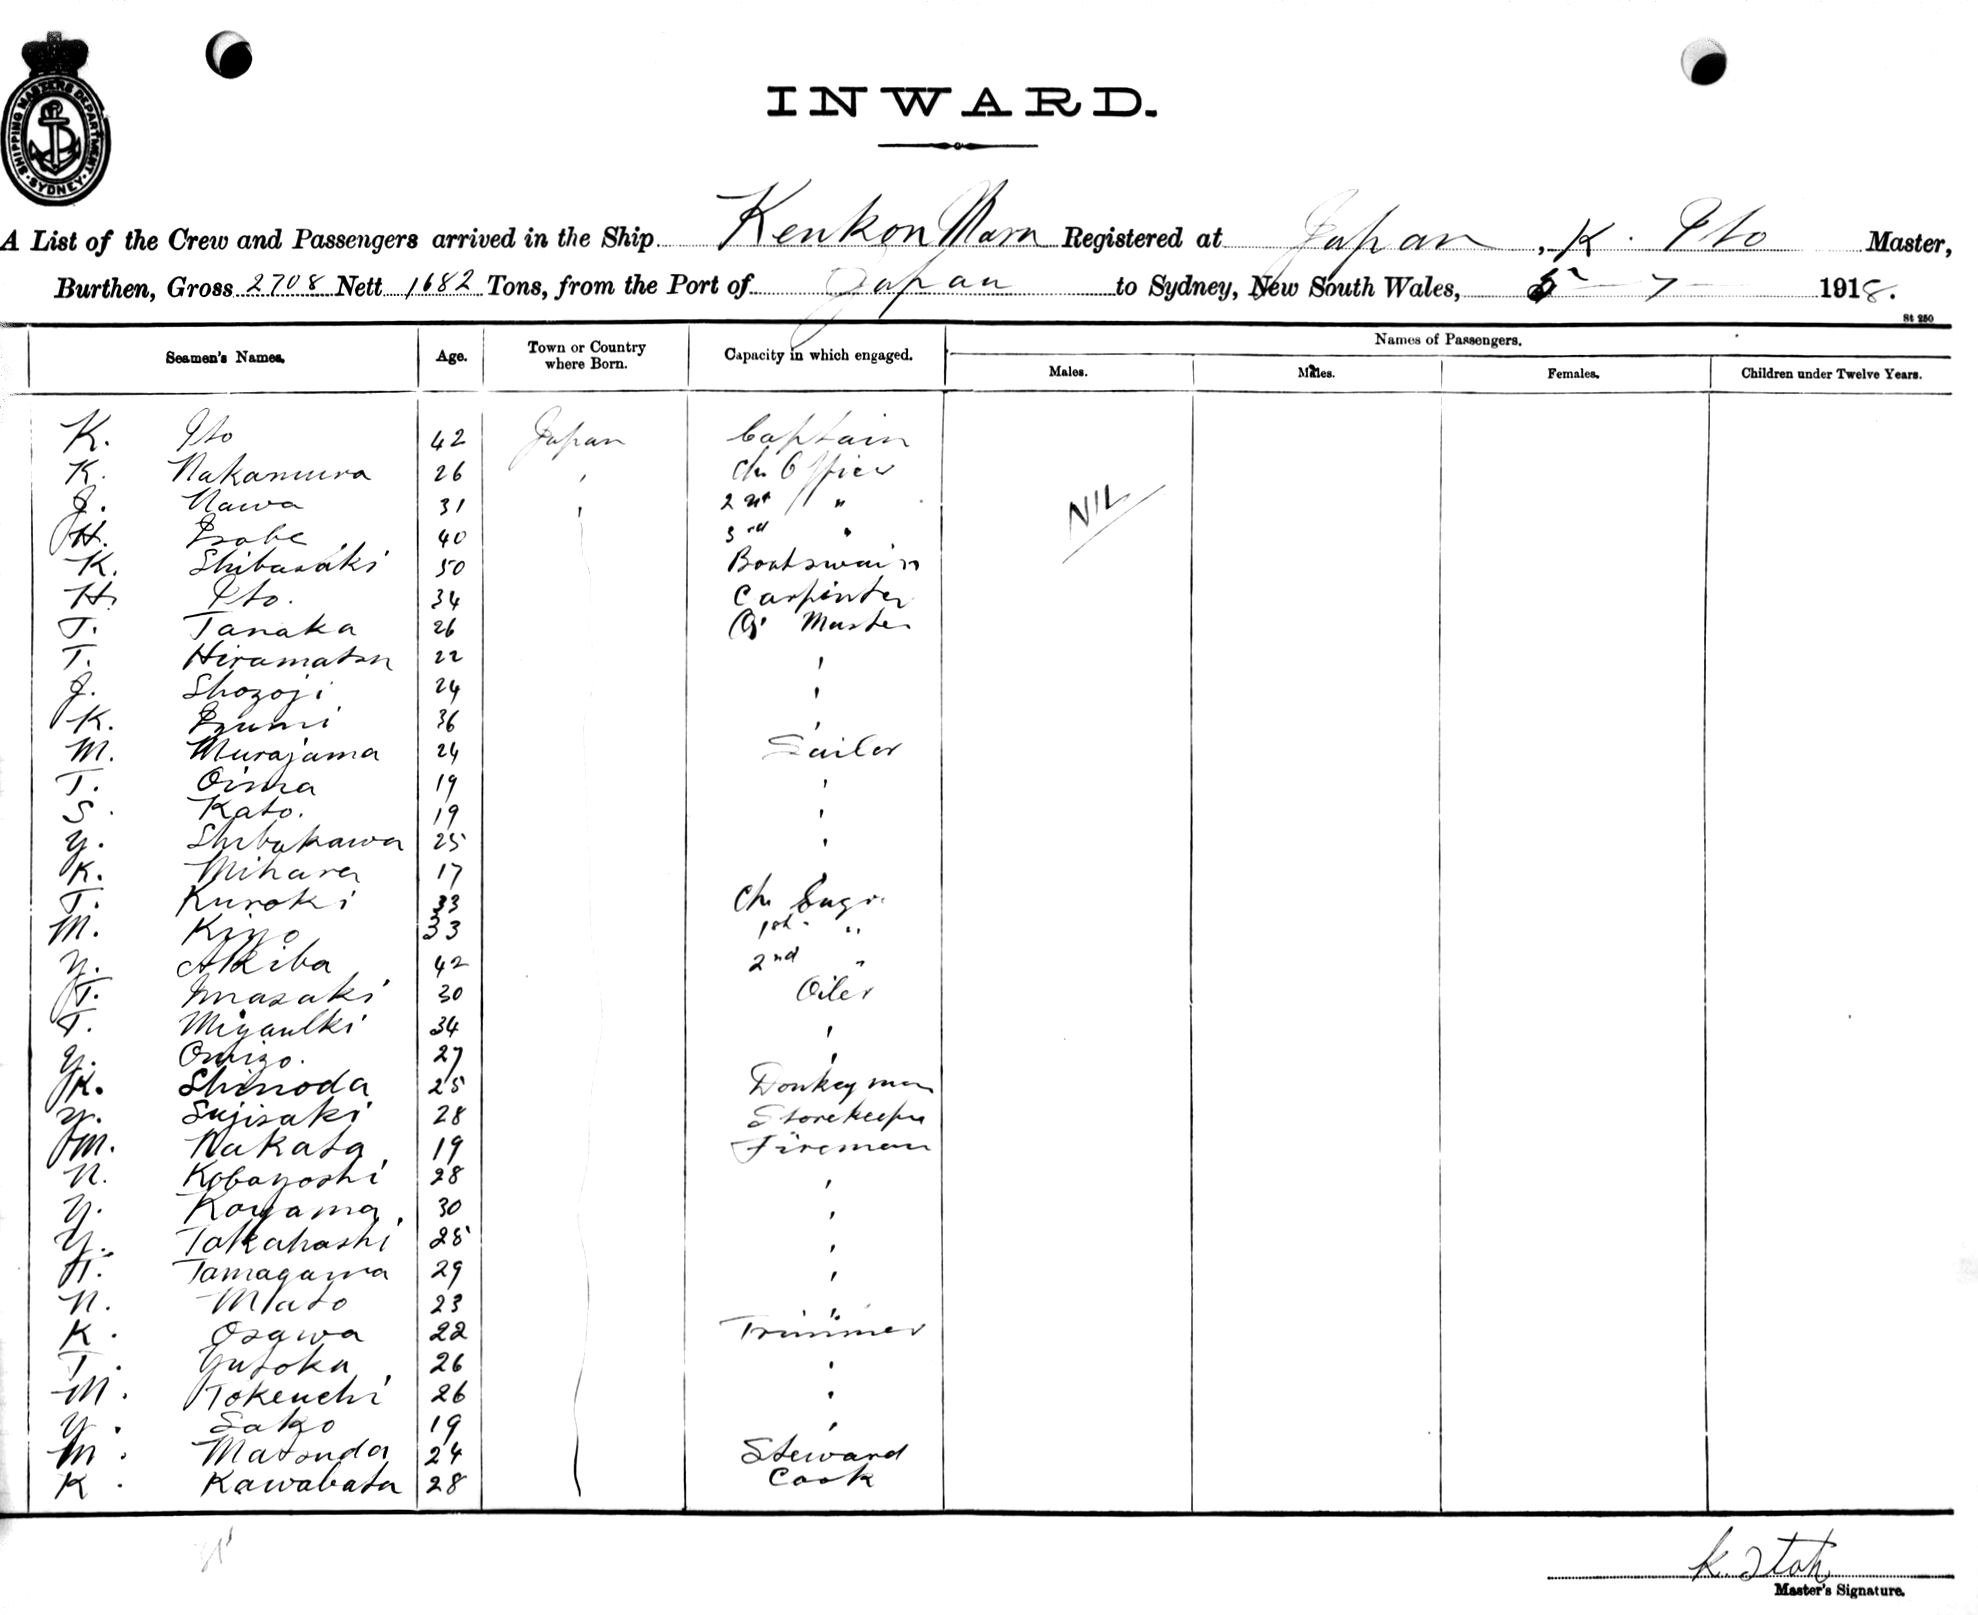 SHIPPING MASTERS DEPARTMENT. SYDNEY.
INWARD.
A List of the Crew and Passengers arrived in the Ship Kenkon Maru Registered at Japan, K. Ito Master,
Burthen, Gross 2708 Nett 1682 Tons, from the Port of Japan to Sydney, New South Wales, 5 - 7 - 1918.
St 250
Seamen's Names. Age. Town or Country where Born. Capacity in which engaged. Names of Passengers.
Males. Males. Females. Children under Twelve Years.
K. Ito 42 Japan Captain
K. Nakamura 26 ' Ch. Officer
J. Nawa 31 ' 2nd "
H. Isobe 40 3rd "
NIL
K. Shibasaki 50 Boatswain
H. Ito. 34 Carpinter
T. Tanaka 26 Qr Master
T. Hiramatsu 22 '
J. Shozoji 24 '
K. Izumi 36 '
M. Murajama 24 Sailor
T. Oima 19 '
S. Kato. 19 '
Y. Shibukawa 25 '
K. Mihara 17 '
T. Kuroki 33 Ch. Engr.
M. Kino 33 1st "
Y. Akiba 42 2nd "
T. Imasaki 30 Oiler
T. 34 '
Y. Omizo. 27 '
K. Shinoda 25 Donkeyman
Y. Sujisaki 28 Storekeeper
M. Nakata 19 Fireman
N. Kobayoshi 28 '
Y. Koyama 30 '
Y. Takahashi 25 '
H. Tamagawa 29 '
N. Miato 23 '
K. Osawa 22 Trimmer
T. Yutoka 26 '
M. Tokeuchi 26 '
Y. Sako 19 '
M. Matsuda 24 Steward
K. Kawabata 28 Cook
K. Itoh
Master's Signature.